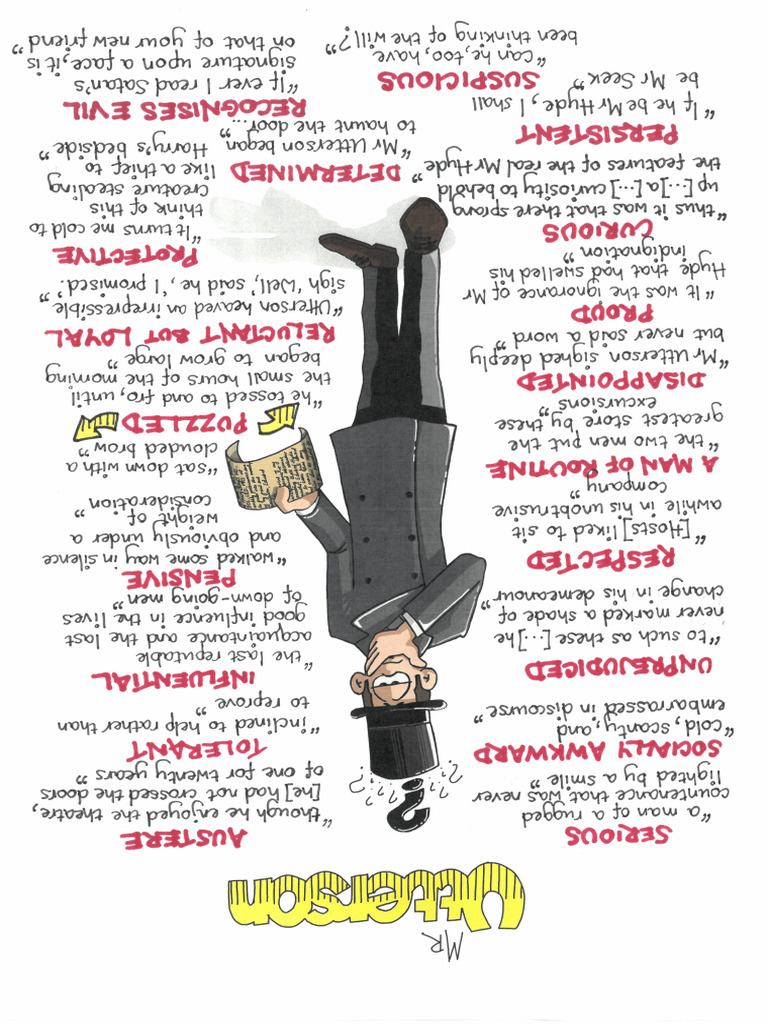 MR.
Utterson
SERIOUS
"a man of a rugged
countenance that was never
lighted by a smile"
SOCIALLY AWKWARD
"cold, scanty, and
embarrassed in discourse"
UNPREJUDICED
"to such as these [...]he
never marked a shade of
change in his demeanour"
RESPECTED
"[Hosts] liked to sit
awhile in his unobtrusive
company"
A MAN OF ROUTINE
"the two men put the
greatest store by these
excursions"
DISAPPOINTED
"Mr Utterson sighed deeply
but never said a word"
PROUD
"It was the ignorance of Mr
Hyde that had swelled his
indignation"
CURIOUS
"thus it was that there sprang
up [...]a [...] curiosity to behold
the features of the real Mr Hyde"
PERSISTENT
"If he be Mr Hyde, I shall
be Mr Seek"
SUSPICIOUS
"can he, too, have
been thinking of the will?"
AUSTERE
"though he enjoyed the theatre,
[he] had not crossed the doors
of one for twenty years"
TOLERANT
"inclined to help rather than
to reprove"
INFLUENTIAL
"the last reputable
acquaintance and the last
good influence in the lives
of down-going men"
PENSIVE
"walked some way in silence
and obviously under a
weight of
consideration"
"sat down with a
clouded brow"
PUZZLED
"he tossed to and fro, until
the small hours of the morning
began to grow large"
RELUCTANT BUT LOYAL
"Utterson heaved an irrepressible
sigh 'Well', said he, 'I promised'."
PROTECTIVE
"It turns me cold to
think of this
creature stealing
like a thief to
Harry's bedside"
DETERMINED
"Mr Utterson began
to haunt the door..."
RECOGNISES EVIL
"If ever I read Satan's
signature upon a face, it is
on that of your new friend"